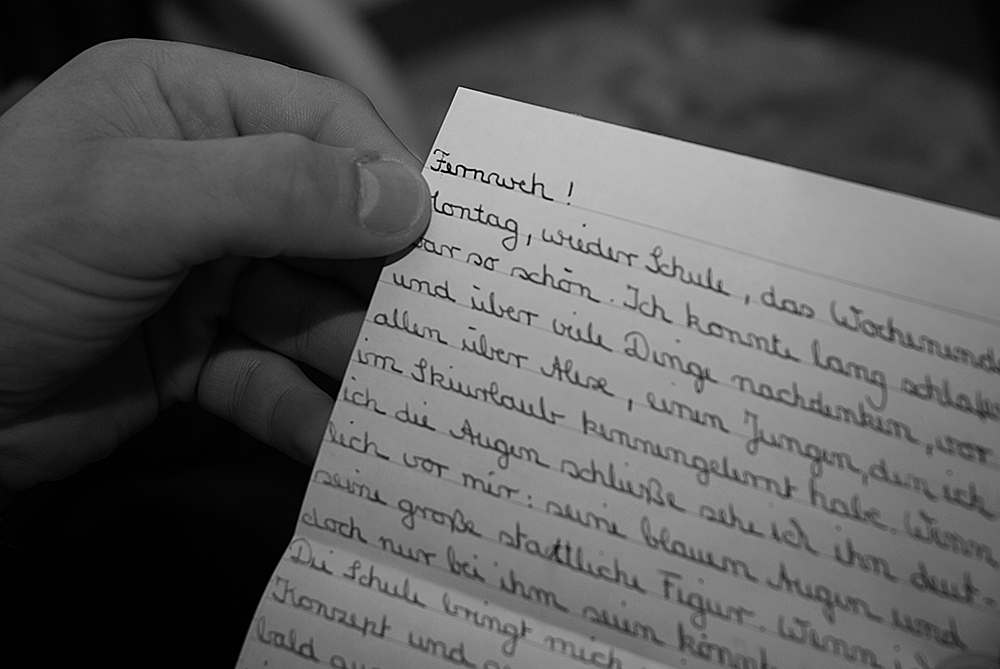 Fernweh !
Montag, wieder Schule, das Wochenende
war so schön. Ich konnte lang schlafen
und über viele Dinge nachdenken, vor
allen über Alexe, einen Jungen, den ich
im Skiurlaub kennengelernt habe. Wenn
ich die Augen schließe sehe ich ihn deut-
lich vor mir: seine blauen Augen und
seine große stattliche Figur. Wenn
doch nur bei ihm sein könnte
Die Schule bringt mich
Konzept und
bald